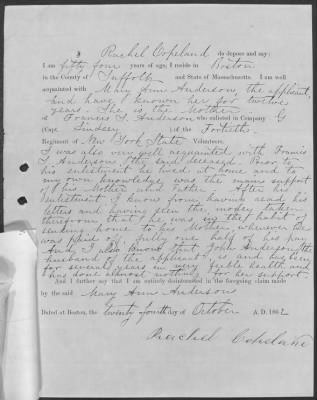 I, Rachel Copeland do depose and say:
I am fifty four years of age; I reside in Boston
in the County of Suffolk and State of Massachusetts. I am well
acquainted with Mary Ann Anderson, the applicant,
and have known her for twelve
years. She is the Mother
of Francis T. Anderson who enlisted in Company G
(Capt. Lindsey ) of the Fortieth
Regiment of New York State Volunteers.
I was also very well acquainted with Francis
T. Anderson, the said deceased. Prior to
his enlistment he lived at home and to
my own knowledge, was the main support
of his Mother and Father. After his
enlistment I know from having read his
letters and having seen the money taken
therefrom that he was in the habit of
sending home to his Mother, whenever he
was paid off fully one half of his pay.
And I also know that John Anderson, the
husband of the applicant, is and has been
for several years in very feeble health and
has done almost nothing for her support.
And I further say that I am entirely disinterested in the foregoing claim made
by the said Mary Ann Anderson
Dated at Boston, the twenty fourth day of October A.D. 186
Rachel Copeland